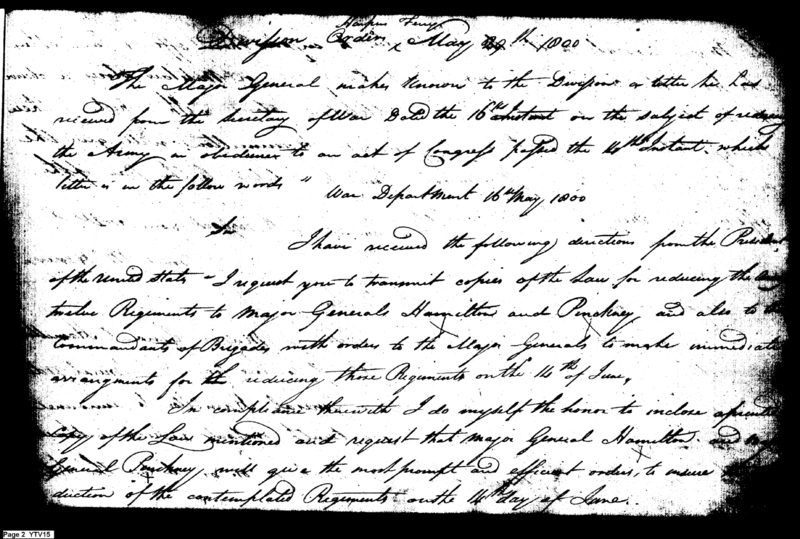 Harpers Ferry
Division Orders, May 29th 1800
The Major General makes known to the Division a letter he has
received from the Secretary of War Dated the 16th Instant on the subject of reducing
the Army in obedience to an act of Congress passed the 14th Instant. which
letter is in the follow words "
War Department 16th May 1800
Sir
I have received the following directions from the President
of the United States "I request you to transmit copies of the Law for reducing the
twelve Regiments to Major Generals Hamilton and Pinckney and also to the
Commandants of Brigades with orders to the Major Generals to make immediate
arrangments for the reducing those Regiments on the 14th of June,
In compliance therewith I do myself the honor to inclose a printed
Copy of the Law mentioned and request that Major General Hamilton and
General Pinckney will give the most prompt and efficient orders, to insure
duction of the contemplated Regiments on the 14th day of June.
Page 2 YTV15